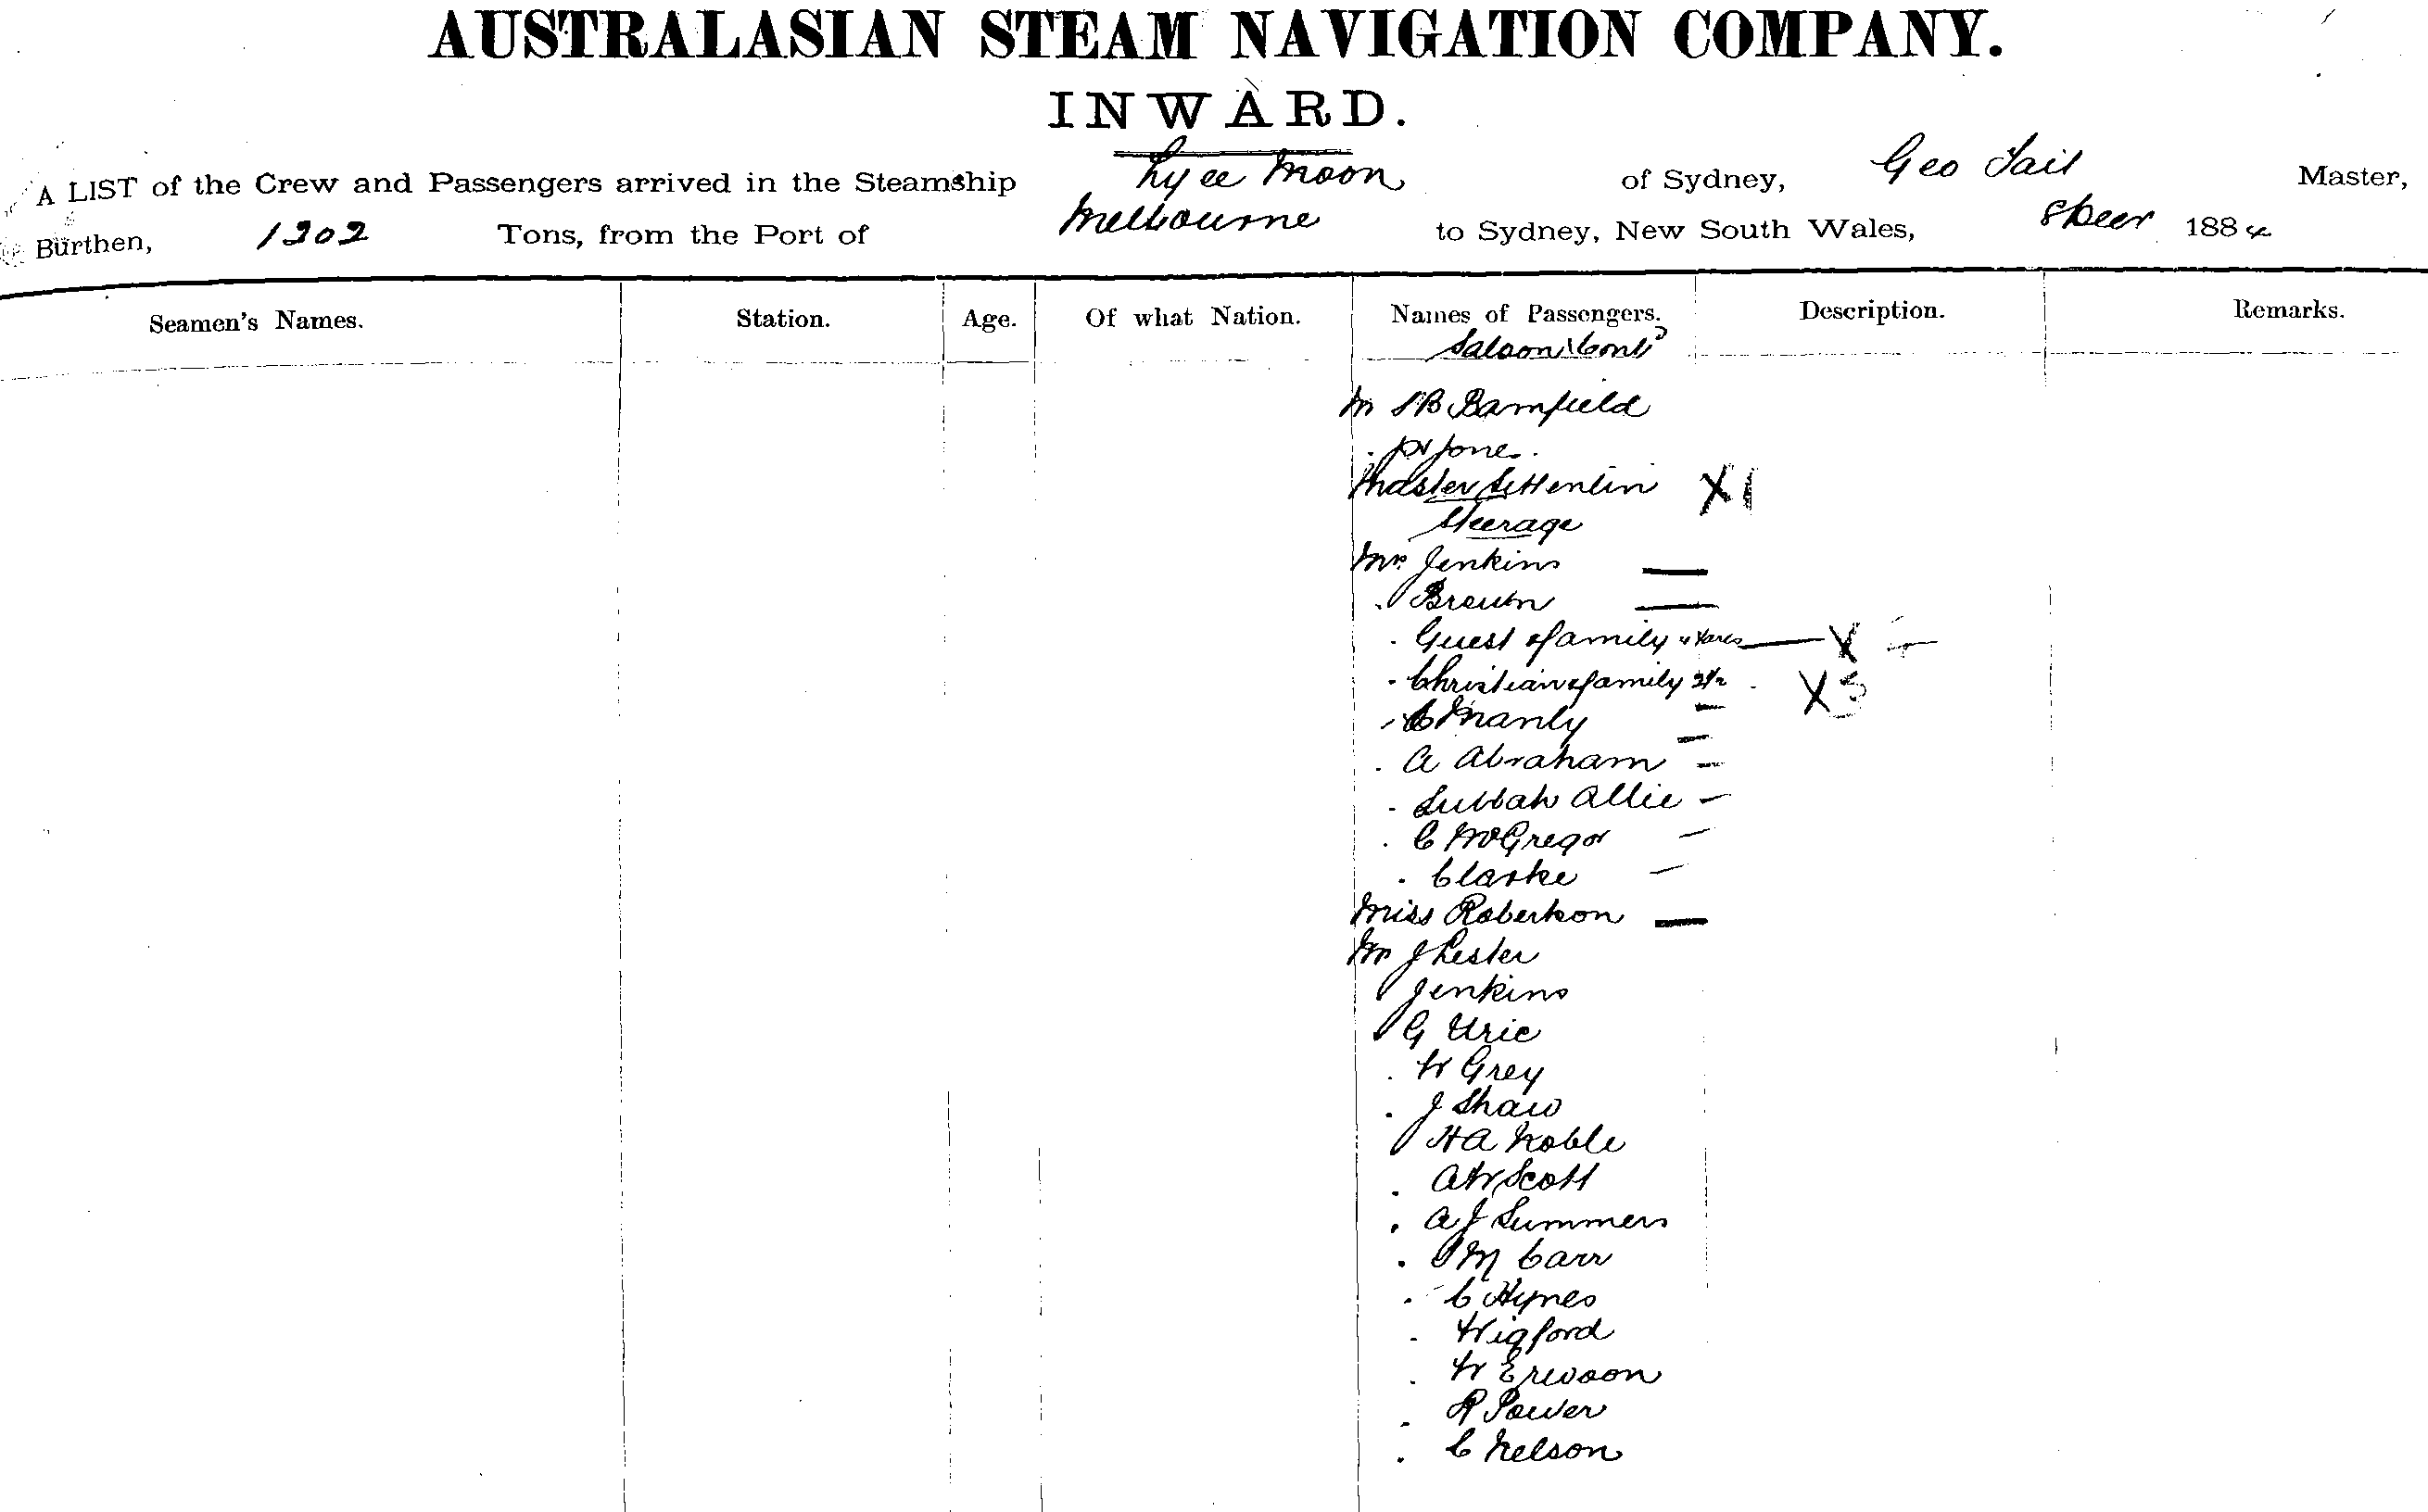 AUSTRALASIAN STEAM NAVIGATION COMPANY.
INWARD.
A LIST of the Crew and Passengers arrived in the Steamship Lyee Moon of Sydney, Geo Tait Master,
Burthen, 1202 Tons, from the Port of Melbourne to Sydney, New South Wales, 8 Decr 1884
Seamen's Names. Station. Age. Of what Nation. Names of Passengers. Description. Remarks.
Saloon Cont
Mr S B Bamfield
Master X 1
Steerage
Mr Jenkins
Brown
Guest & family 4 X
Christian & family 2½ X 3
C Manly
A Abraham
Subbah Allie
C McGregor
Clarke
Miss Robertson
Mr J Lester
Jenkins
G Urie
W Grey
J Shaw
H A Noble
A W Scott
A J Summers
M Carr
C Hynes
Wigford
W Erwoon
R Power
C Nelson